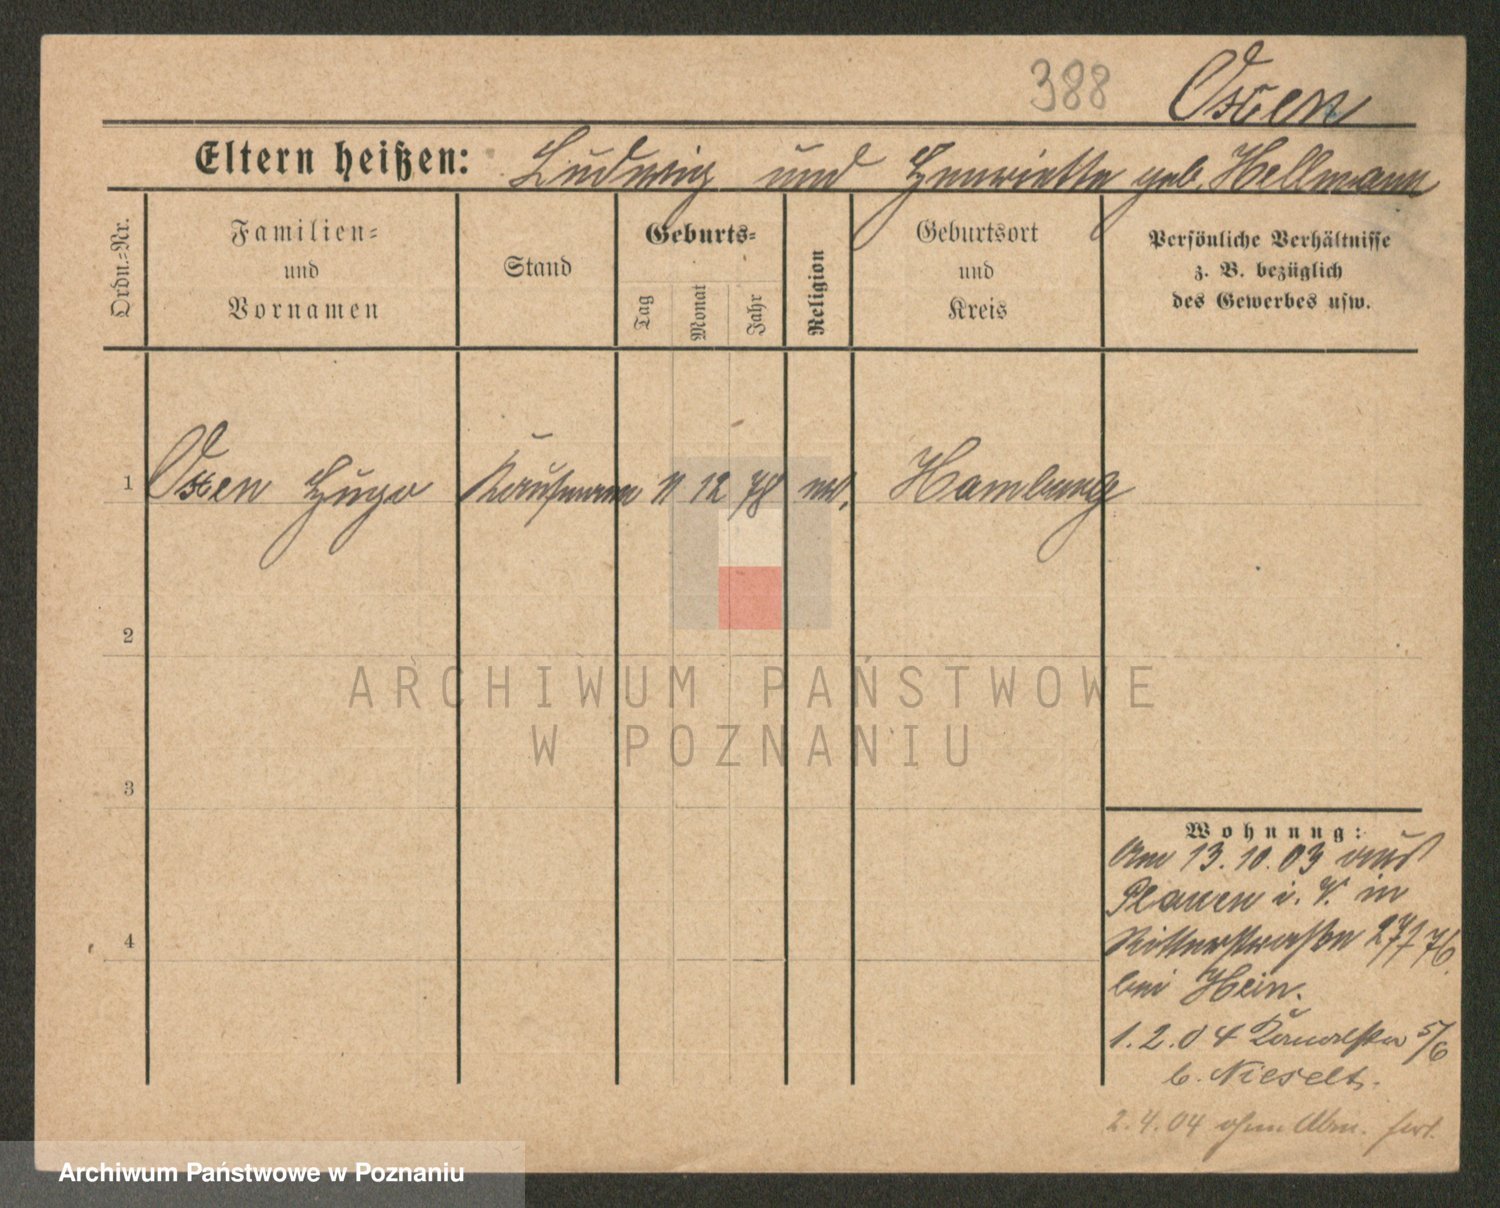 388 Osten
Eltern heißen: Ludwig und Henriette geb. Hellmann
Ordn.-Nr.
Familien-
und
Vornamen
Stand
Geburts-
Tag
Monat
Jahr
Religion
Geburtsort
und
Kreis
Persönliche Verhältnisse
z. B. bezüglich
des Gewerbes usw.
1 Osten Hugo Kaufmann 11 12 78 Hamburg
2
3
4
Wohnung:
Am 13.10.03 aus
Plauen i. V. in
Ritterstraße
bei Hein.
1.2.04 5/6
b. Nieselt.
2.4.04 ohne Abm. fort.
ARCHIWUM PAŃSTWOWE
W POZNANIU
Archiwum Państwowe w Poznaniu